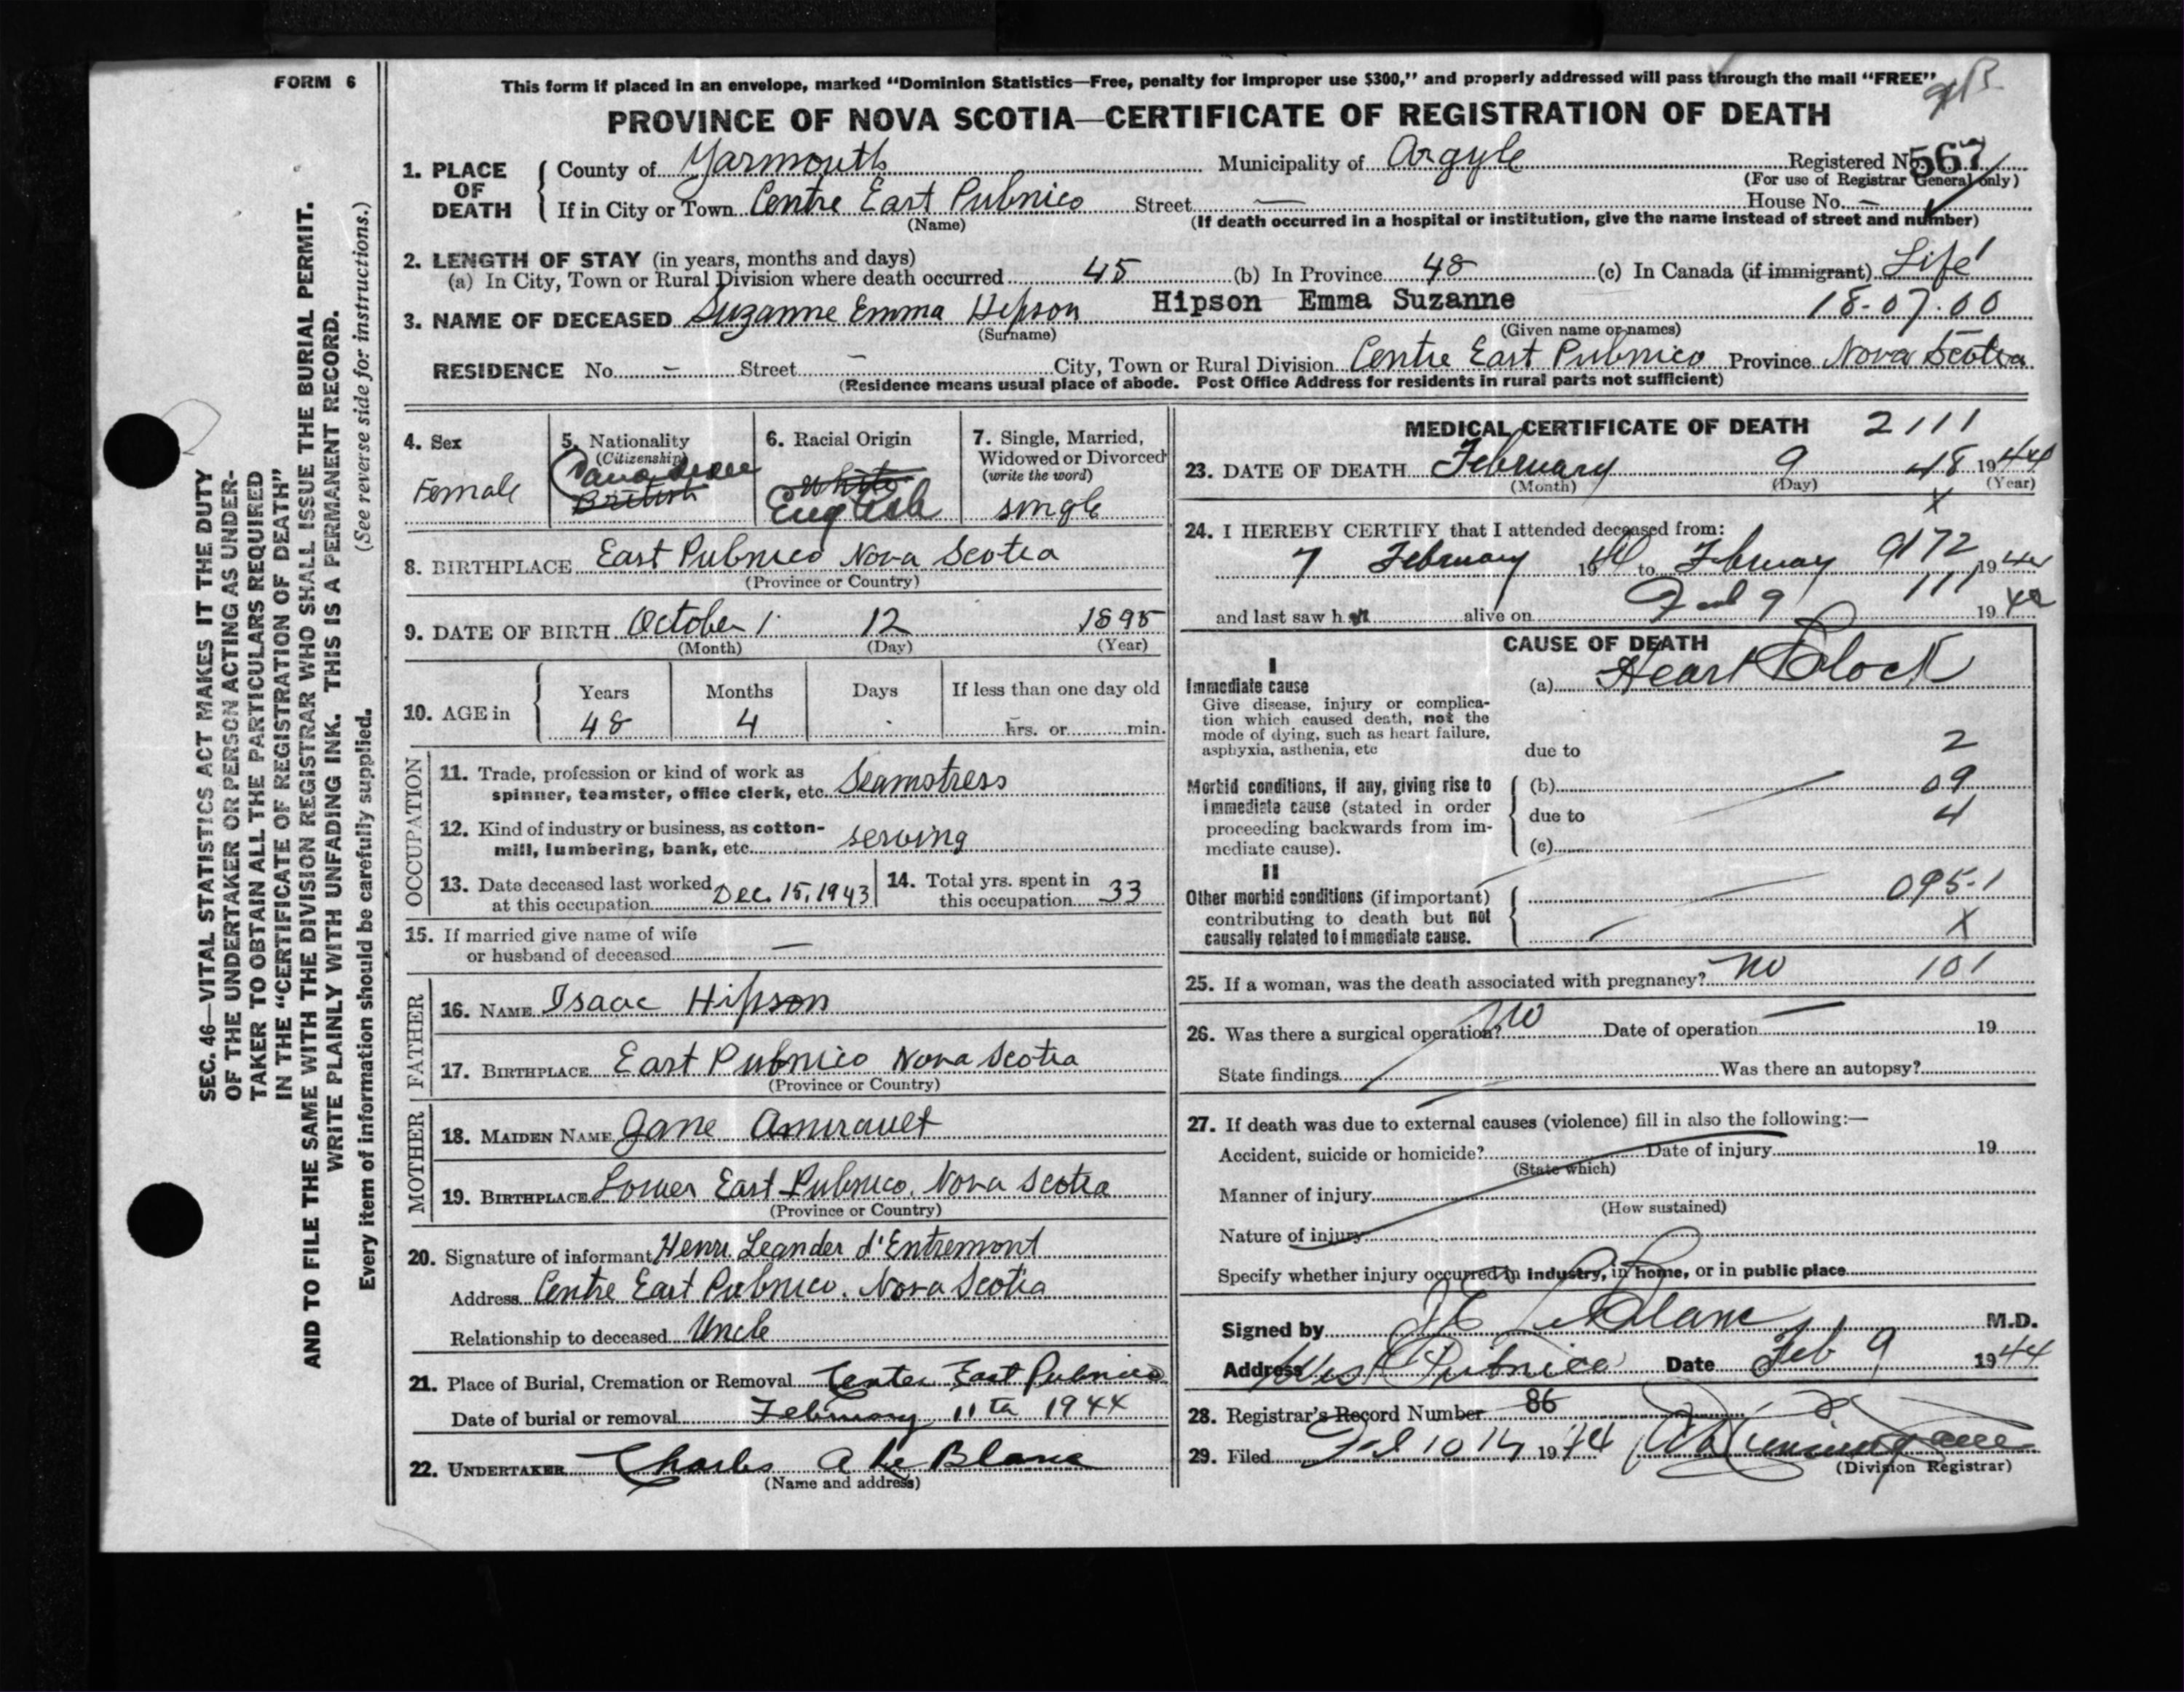 FORM 6
This form if placed in an envelope, marked "Dominion Statistics—Free, penalty for improper use $300," and properly addressed will pass through the mail "FREE"
PROVINCE OF NOVA SCOTIA—CERTIFICATE OF REGISTRATION OF DEATH
1. PLACE OF DEATH County of Yarmouth Municipality of Argyle Registered No. 567
(For use of Registrar General only)
If in City or Town Centre East Pubnico Street — House No. —
(Name) (If death occurred in a hospital or institution, give the name instead of street and number)
2. LENGTH OF STAY (in years, months and days)
(a) In City, Town or Rural Division where death occurred 45 (b) In Province 48 (c) In Canada (if immigrant) Life
3. NAME OF DECEASED Suzanne Emma Hipson Hipson Emma Suzanne 18-07-00
(Surname) (Given name or names)
RESIDENCE No. — Street — City, Town or Rural Division Centre East Pubnico Province Nova Scotia
(Residence means usual place of abode. Post Office Address for residents in rural parts not sufficient)
4. Sex Female
5. Nationality (Citizenship) Canadian British
6. Racial Origin White English
7. Single, Married, Widowed or Divorced (write the word) single
8. BIRTHPLACE East Pubnico Nova Scotia
(Province or Country)
9. DATE OF BIRTH October 12 1895
(Month) (Day) (Year)
10. AGE in Years 48 Months 4 Days If less than one day old hrs. or min.
OCCUPATION
11. Trade, profession or kind of work as spinner, teamster, office clerk, etc. Seamstress
12. Kind of industry or business, as cotton-mill, lumbering, bank, etc. serving
13. Date deceased last worked at this occupation Dec. 15, 1943
14. Total yrs. spent in this occupation 33
15. If married give name of wife or husband of deceased —
FATHER
16. NAME Isaac Hipson
17. BIRTHPLACE East Pubnico Nova Scotia
(Province or Country)
MOTHER
18. MAIDEN NAME Jane Amirault
19. BIRTHPLACE Lower East Pubnico, Nova Scotia
(Province or Country)
20. Signature of informant Henri Leander d'Entremont
Address Centre East Pubnico, Nova Scotia
Relationship to deceased Uncle
21. Place of Burial, Cremation or Removal Center East Pubnico
Date of burial or removal February 11th 1944
22. UNDERTAKER Charles A LeBlanc
(Name and address)
MEDICAL CERTIFICATE OF DEATH 2111
23. DATE OF DEATH February 9 48 1944
(Month) (Day) (Year)
X
24. I HEREBY CERTIFY that I attended deceased from:
7 February 19 44 to February 9 172 19 44
111
and last saw her alive on Feb 9 19 44
CAUSE OF DEATH
I
Immediate cause (a) Heart Block
Give disease, injury or complication which caused death, not the mode of dying, such as heart failure, asphyxia, asthenia, etc
due to 2
Morbid conditions, if any, giving rise to immediate cause (stated in order proceeding backwards from immediate cause).
(b) 09
due to 4
(c)
II
Other morbid conditions (if important) contributing to death but not causally related to immediate cause.
095-1
X
25. If a woman, was the death associated with pregnancy? No 101
26. Was there a surgical operation? No Date of operation — 19
State findings Was there an autopsy?
27. If death was due to external causes (violence) fill in also the following:—
Accident, suicide or homicide? Date of injury 19
(State which)
Manner of injury
(How sustained)
Nature of injury
Specify whether injury occurred in industry, in home, or in public place
Signed by LeBlanc M.D.
Address West Pubnico Date Feb 9 1944
28. Registrar's Record Number 86
29. Filed Feb 10 19
(Division Registrar)
SEC. 46—VITAL STATISTICS ACT MAKES IT THE DUTY
OF THE UNDERTAKER OR PERSON ACTING AS UNDER-
TAKER TO OBTAIN ALL THE PARTICULARS REQUIRED
IN THE "CERTIFICATE OF REGISTRATION OF DEATH"
AND TO FILE THE SAME WITH THE DIVISION REGISTRAR WHO SHALL ISSUE THE BURIAL PERMIT.
WRITE PLAINLY WITH UNFADING INK. THIS IS A PERMANENT RECORD.
Every item of information should be carefully supplied. (See reverse side for instructions.)